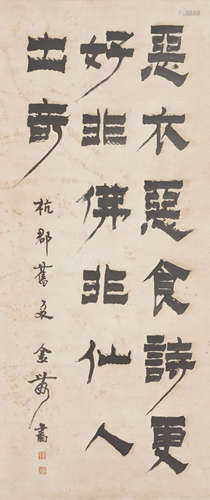 惡衣惡食詩更
好非佛非仙人
出奇
杭郡舊民金農書